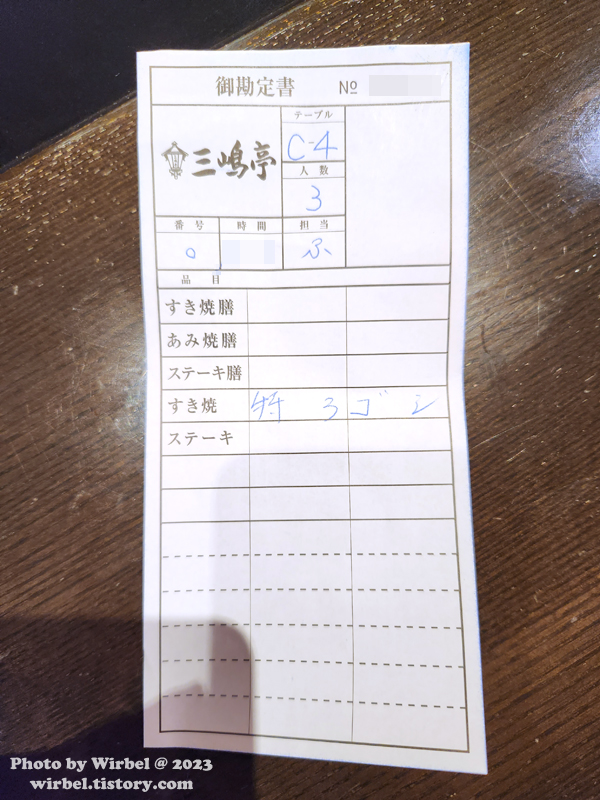 御勘定書 №
テーブル
三嶋亭 C-4
人数
3
番号 時間 担当
0 ふ
品目
すき焼膳
あみ焼膳
ステーキ膳
すき焼 特 3 ゴ シ
ステーキ
Photo by Wirbel @ 2023
wirbel.tistory.com